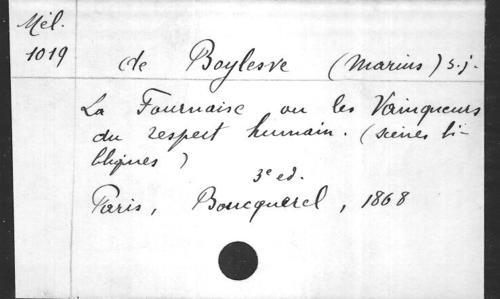 Mél.
1019
de Boylesve (Marius) s.j.
La Fournaise ou les Vainqueurs
du respect humain. (scènes bi-
bliques)
3e ed.
Paris, Boucquerel, 1868